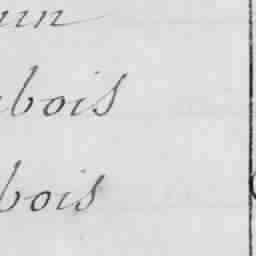 un
bois
bois